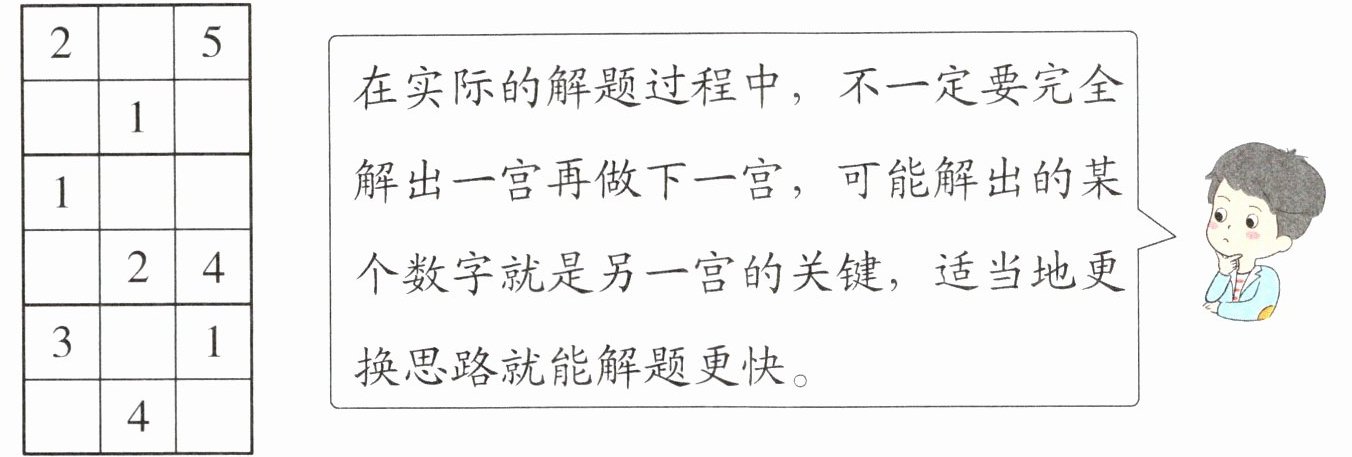 2 5
1
1
2 4
3 1
4
在实际的解题过程中，不一定要完全
解出一宫再做下一宫，可能解出的某
个数字就是另一宫的关键，适当地更
换思路就能解题更快。